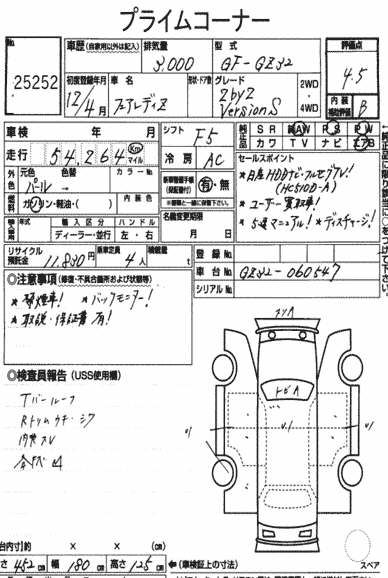 プライムコーナー
No. 25252
車歴 (自家用以外は記入) 排気量 3,000 型式 GF-GZ32 評価点 4.5
初度登録年月 12/4月 車名 フェアレディZ 形状・ドア数 グレード 2by2 VersionS 2WD・4WD
内装補助評価 B
車検 年 月 シフト F5 純正品 SR AW PS PW
カワ TV ナビ エアB
走行 54,264 Km マイル 冷房 AC
セールスポイント
外色 元色 色替 カラーNo.
パール →
★日産HDDナビ・フルセグTV!
(HC510D-A)
燃料 ガソリン・軽油・( ) 内装色
新車整備手帳(保証書付) 有・無
★ユーザー買取車!
年式 輸入区分 ハンドル
ディーラー・並行 左・右
名義変更期限 月 日
★5速マニュアル! ★ディスチャージ!
リサイクル預託金 11,830円 乗車定員 4人 積載量 t
登録No.
車台No. GZ32-060547
シリアルNo.
◎注意事項 (修復・不具合箇所および状態等)
★禁煙車! ★バックモニター!
★取説・保証書有!
◎検査員報告 (USS使用欄)
Tバールーフ
Rトリムウチ・シワ
内装スレ
トビA
台内寸)約 × × (cm)
さ 452cm 幅 180cm 高さ 125cm ←(車検証上の寸法)
スペア